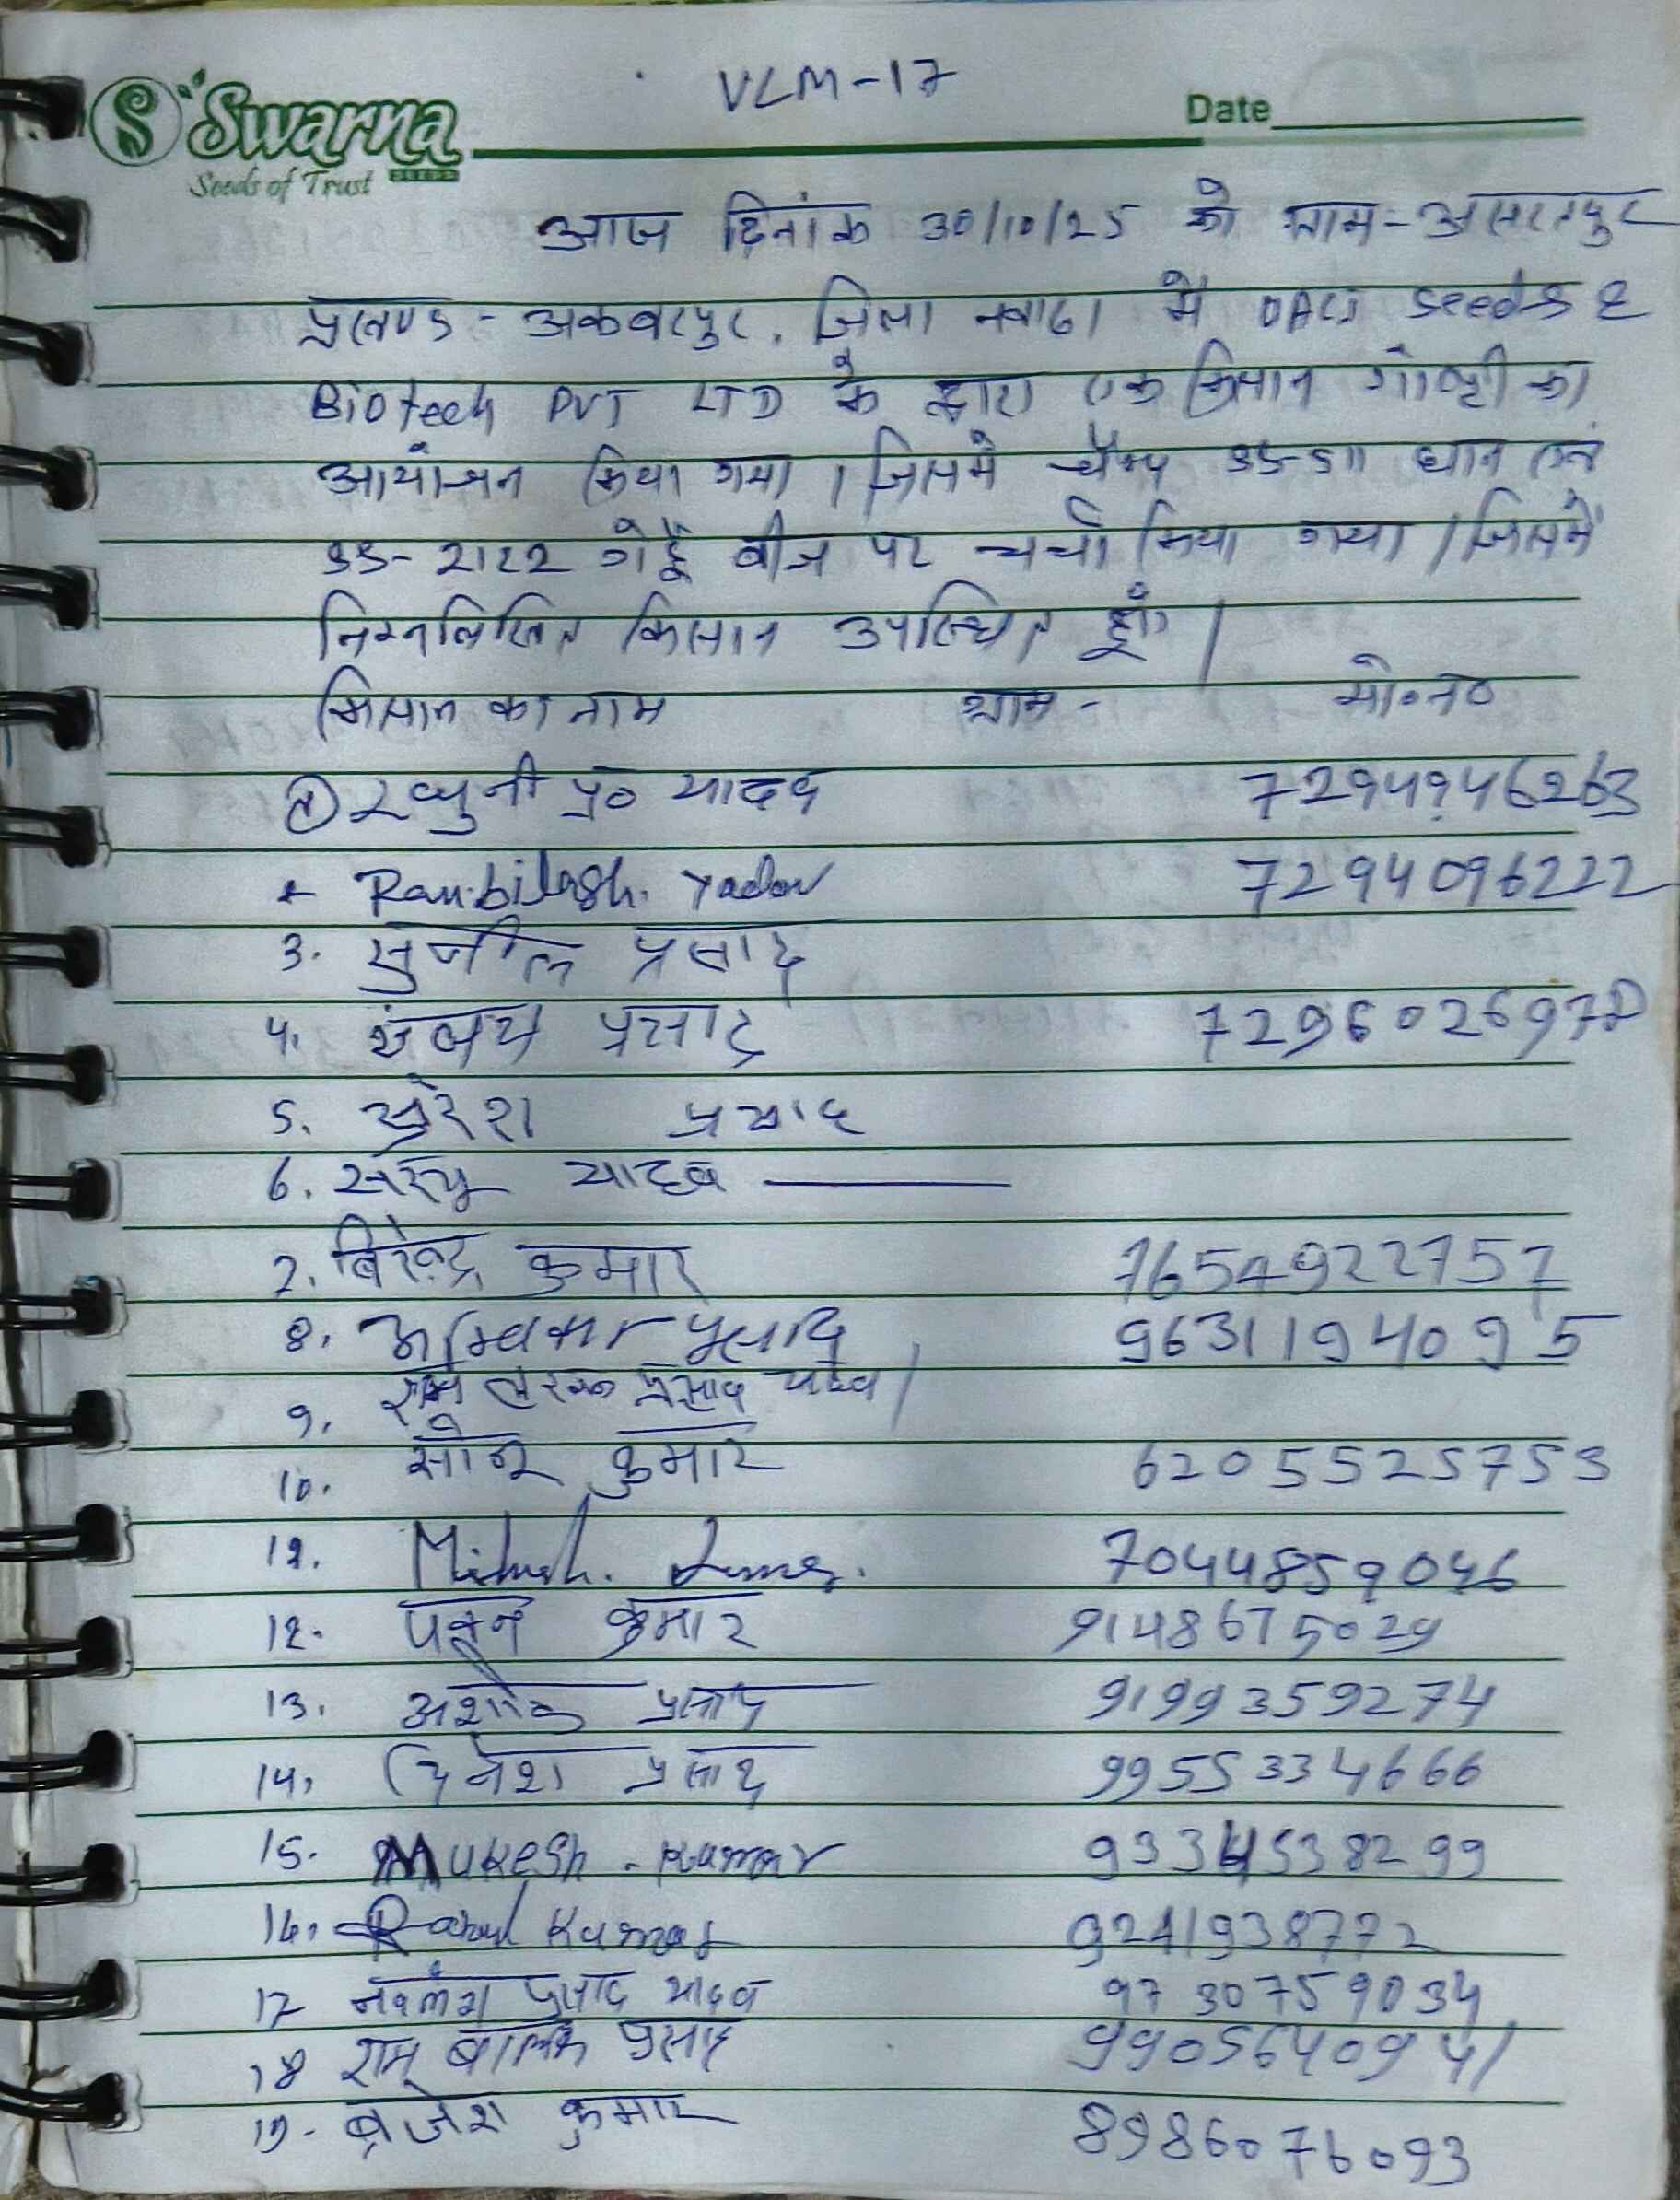 VLM-17
Swarna
SEEDS
Seeds of Trust
Date
आज दिनांक 30/10/25 को ग्राम-असरतपुर
प्रखण्ड - अकबरपुर, जिला नवादा में DACJ Seeds &
Biotech PVT LTD के द्वारा एक किसान गोष्ठी का
आयोजन किया गया । जिसमें चैम्प SS-511 धान एवं
SS-2122 गेहूँ बीज पर चर्चा किया गया । जिसमें
निम्नलिखित किसान उपस्थित हुँए ।
किसान का नाम ग्राम - मो०न०
① रघुनी प्र० यादव 7294946263
Rambilash. Yadav 7294096222
3. सुनील प्रसाद
4. संजय प्रसाद 729602697
5. सुरेश प्रसाद
6. सरयु यादव
7. बिरेन्द्र कुमार 7654922757
8. अम्बिका प्रसाद 9631194095
9. राम प्रसाद यादव
10. सोनू कुमार 6205525753
11. 7044859046
12. पवन कुमार 9148675029
13. अशोक प्रसाद 9199359274
14. दिनेश प्रसाद 9955334666
15. Mukesh. Kumar 9334538299
16. Rahul Kumar 9241938772
17 नवलेश प्रसाद यादव 9730759034
18 राम बालक प्रसाद 9905640941
19. ब्रजेश कुमार 8986076093